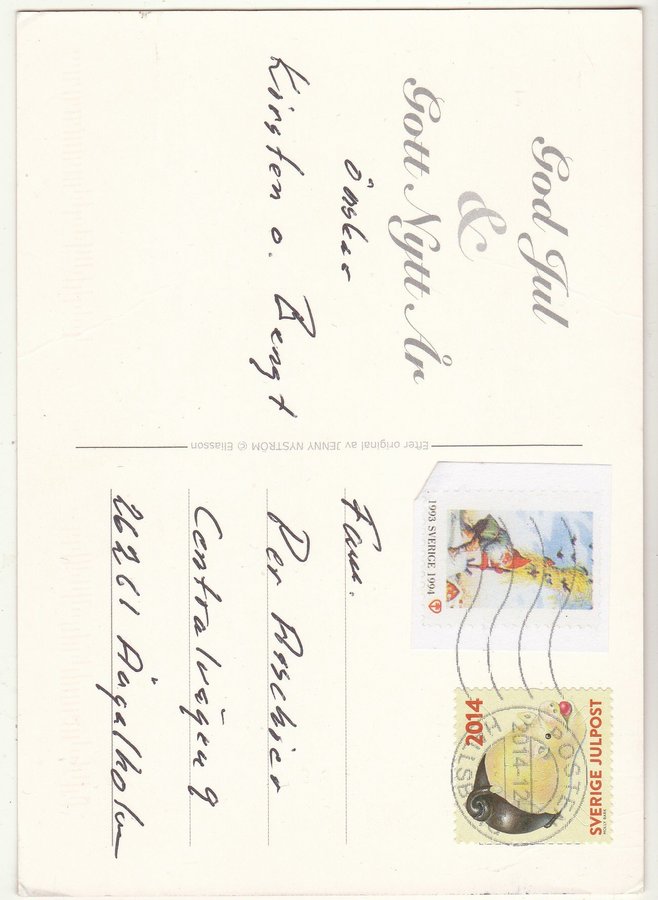 God Jul
&
Gott Nytt År
önskar
Kirsten o. Bengt
Efter original av JENNY NYSTRÖM © Eliasson
1993 SVERIGE 1994
2014
SVERIGE JULPOST
POSTEN
2014-12
Fam.
Per Aschier
Centralvägen 9
26261 Ängelholm